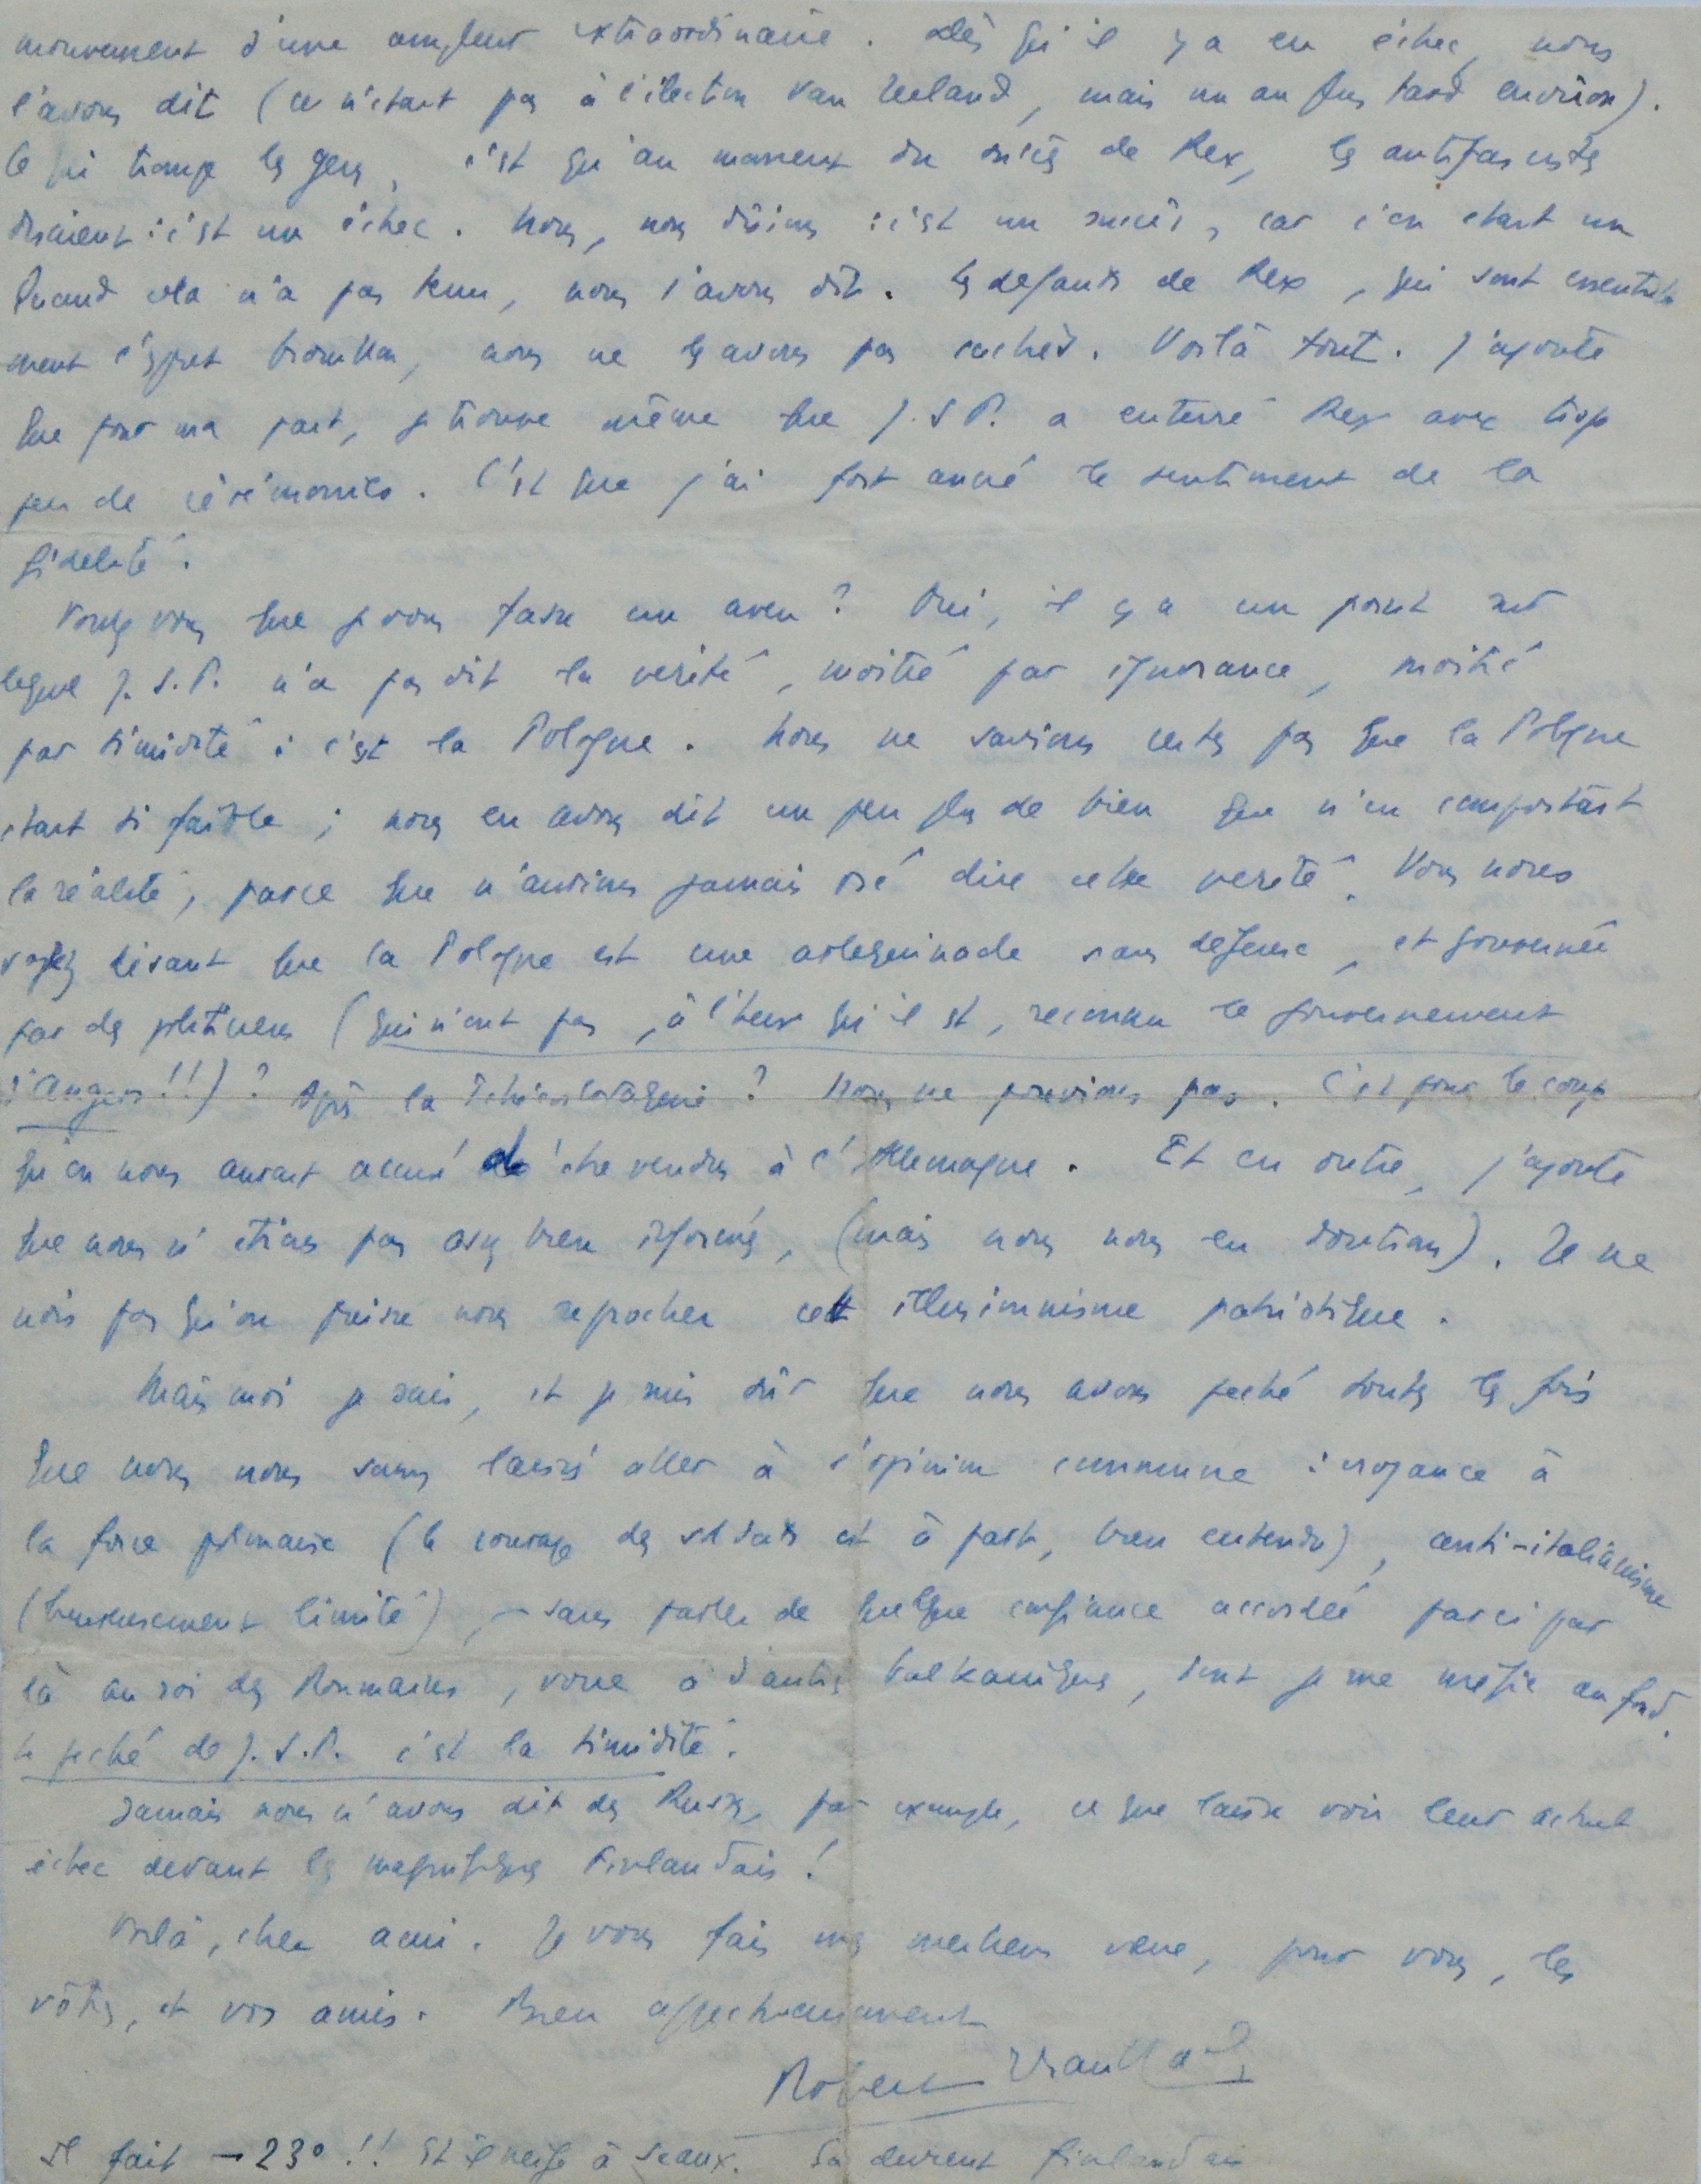 mouvement d'une ampleur extraordinaire. Dès qu'il y a eu échec, nous
l'avons dit (ce n'était pas à l'élection Van Zeeland, mais un an plus tard environ).
Ce qui trompe les gens, c'est qu'au moment du succès de Rex, les antifascistes
disaient : c'est un échec. Nous, nous disions : c'est un succès, car c'en était un
Quand cela n'a pas tenu, nous l'avons dit. Les défauts de Rex, qui sont essentielle
ment l'esprit brouillon, nous ne les avons pas cachés. Voilà tout. J'ajoute
que pour ma part, je trouve même que J.S.P. a enterré Rex avec trop
peu de cérémonies. C'est que j'ai fort ancré le sentiment de la
fidélité.
Voulez vous que je vous fasse un aveu ? Oui, il y a un point sur
lequel J.S.P. n'a pas dit la vérité, moitié par ignorance, moitié
par timidité : c'est la Pologne. Nous ne savions certes pas que la Pologne
était si faible ; nous en avons dit un peu plus de bien que n'en comportait
la réalité, parce que n'aurions jamais osé dire cette vérité. Vous nous
voyez disant que la Pologne est une arlequinade sans défense, et gouvernée
par des politiciens (qui n'ont pas, à l'heure qu'il est, reconnu le gouvernement
d'Angers !!) ? Après la Tchécoslovaquie ? Nous ne pouvions pas. C'est pour le coup
qu'on nous aurait accusé d'être vendus à l'Allemagne. Et en outre, j'ajoute
que nous n'étions pas assez bien informés, (mais nous nous en doutions). Je ne
crois pas qu'on puisse nous reprocher cet illusionnisme patriotique.
Mais moi je sais, et je suis sûr que nous avons péché toutes les fois
que nous nous sommes laissé aller à l'opinion commune : croyance à
la force polonaise (le courage des soldats est à part, bien entendu), anti-italianisme
(heureusement limité), – sans parler de quelque confiance accordée par ci par
là au roi des Roumains, voire à d'autres balkaniques, dont je me méfie au fond.
Le péché de J.S.P. c'est la timidité.
Jamais nous n'avons dit des Russes, par exemple, ce que laisse voir leur actuel
échec devant les magnifiques Finlandais !
Voilà, cher ami. Je vous fais mes meilleurs vœux, pour vous, les
vôtres, et vos amis. Bien affectueusement
Robert Brasillach
Il fait -23° !! Et il neige à seaux. Ça devient finlandais